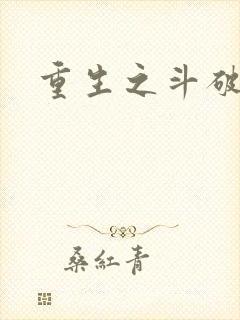 重生之斗破
桑紅青